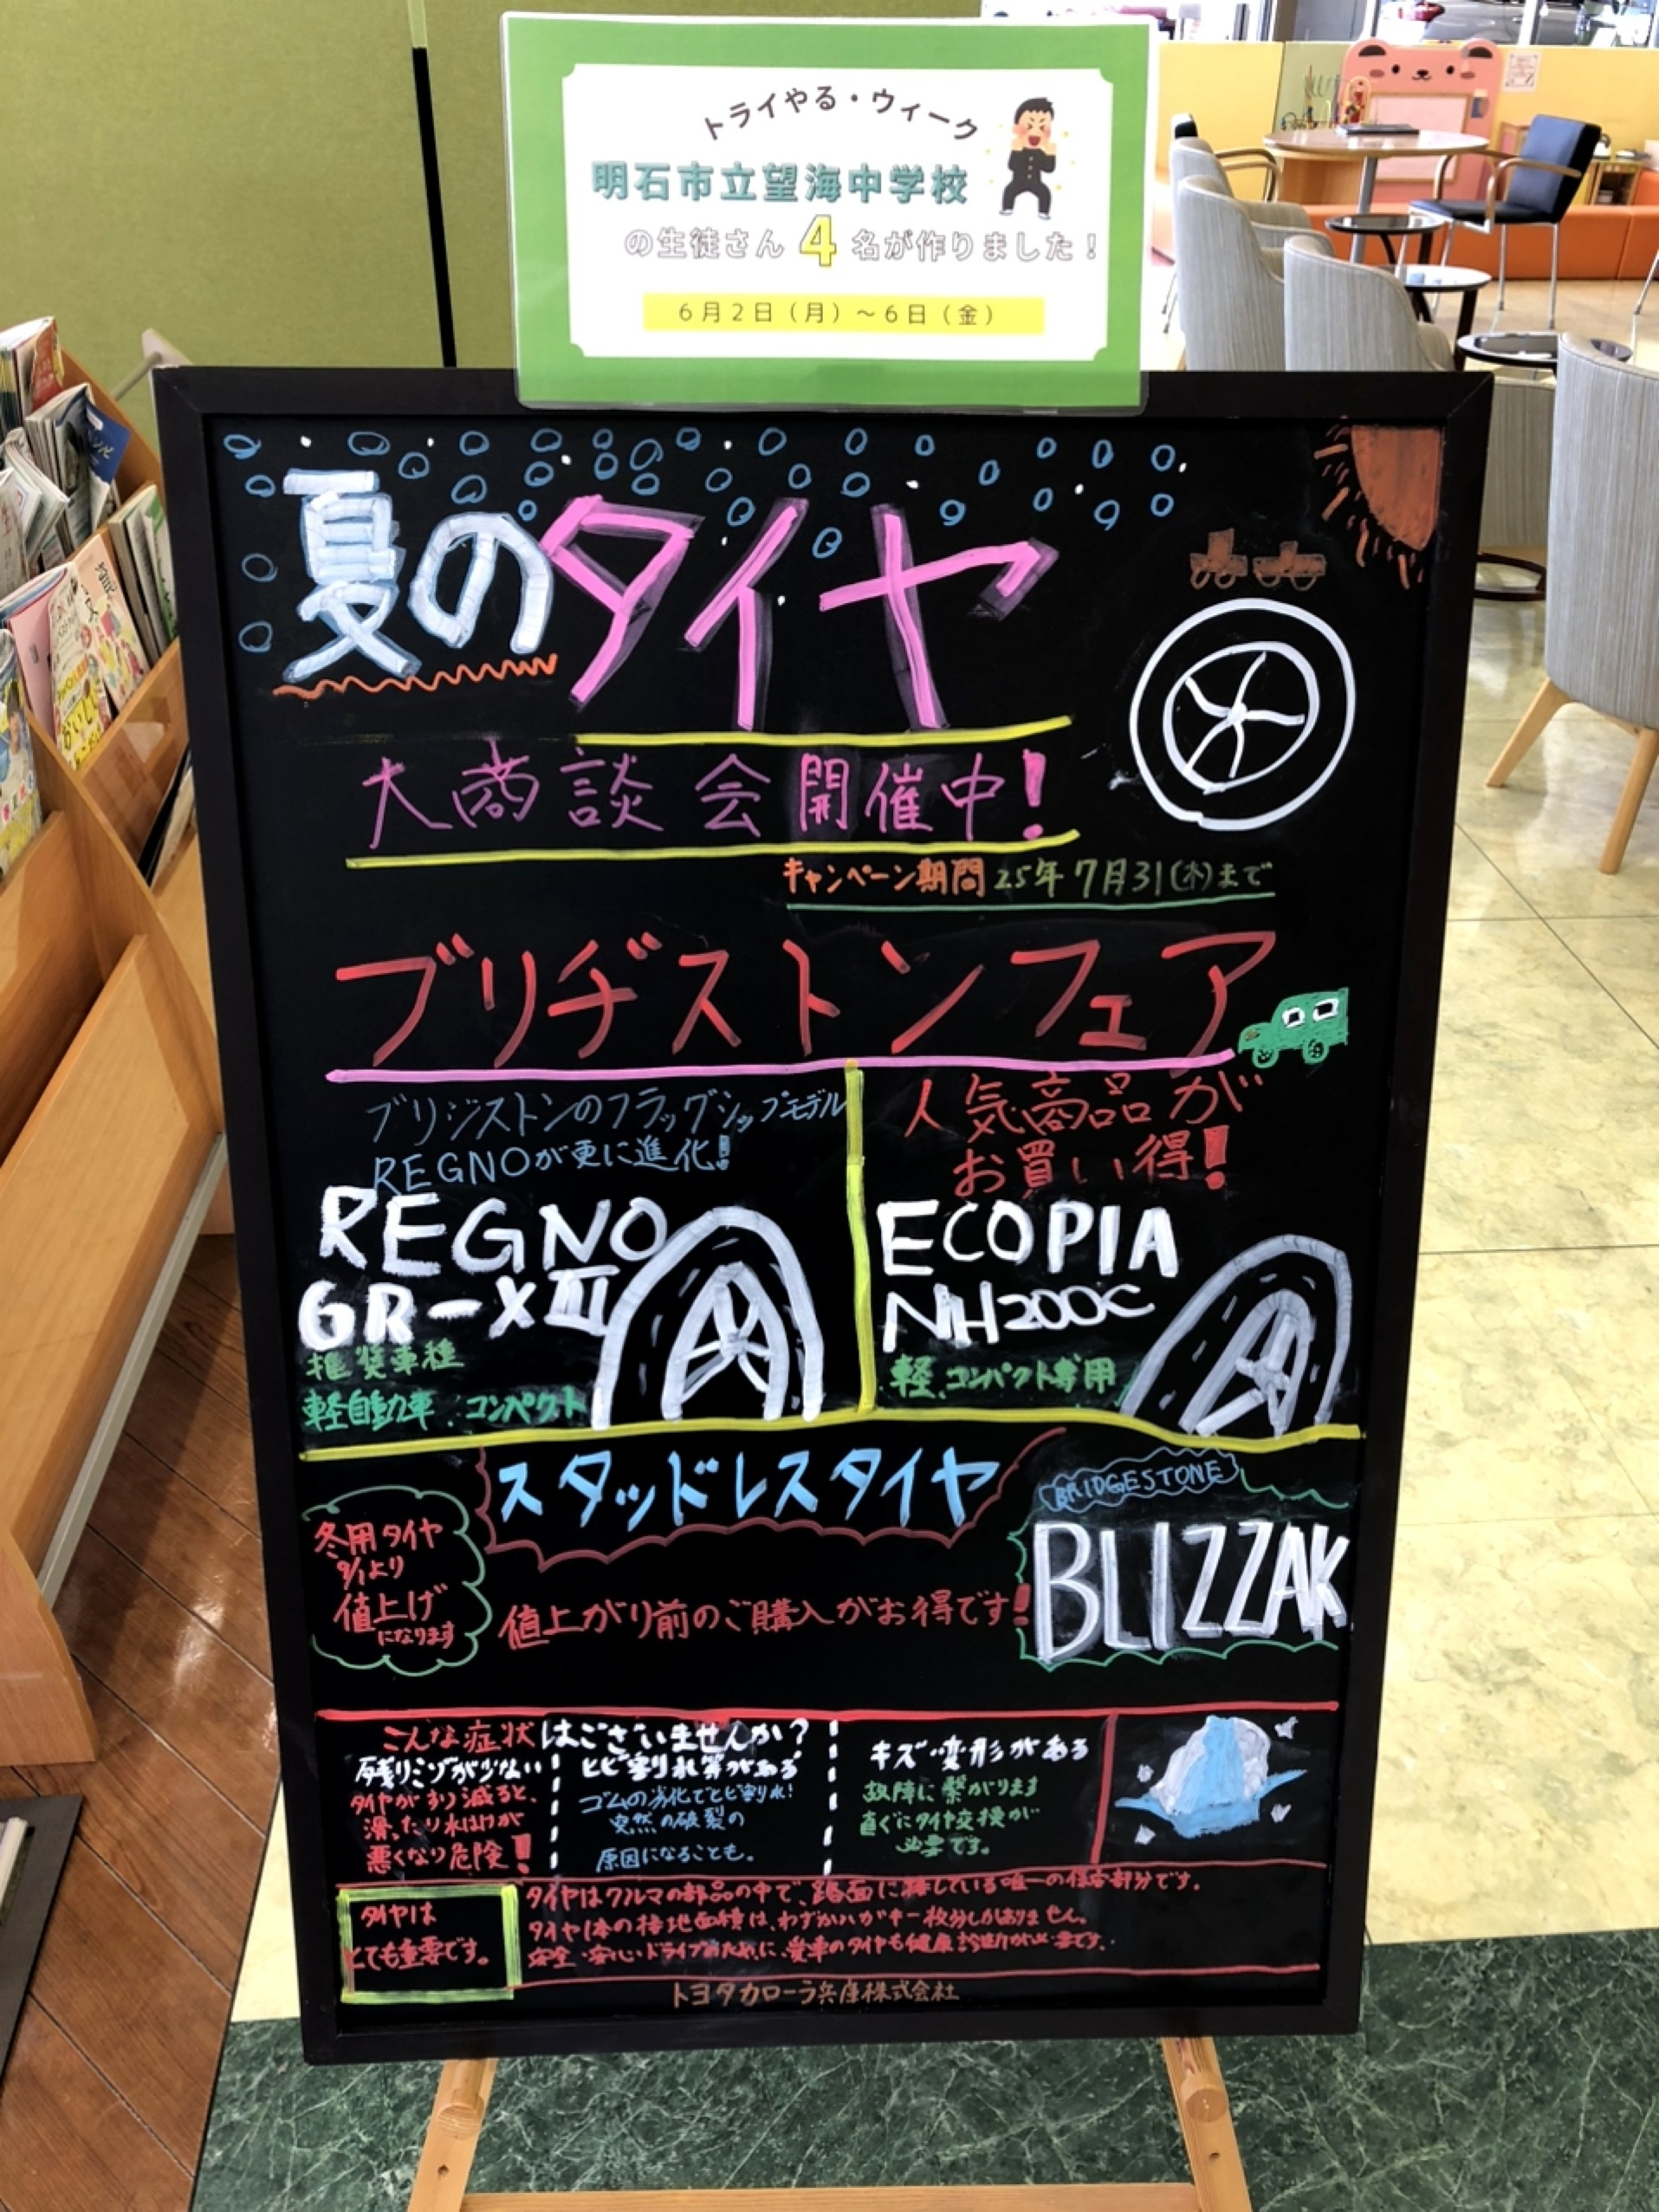 トライやる・ウィーク
明石市立望海中学校
の生徒さん 4 名が作りました！
6月2日（月）～6日（金）
夏のタイヤ
大商談会開催中！
キャンペーン期間 25年7月31(木)まで
ブリヂストンフェア
ブリジストンのフラッグシップモデル
REGNOが更に進化！
REGNO
GR-XⅢ
推奨車種
軽自動車．コンパクト
人気商品が
お買い得！
ECOPIA
NH200C
軽．コンパクト専用
スタッドレスタイヤ
冬用タイヤ
9/1より
値上げ
になります
値上がり前のご購入がお得です！
BRIDGESTONE
BLIZZAK
こんな症状はございませんか？
残りミゾが少ない
タイヤがすり減ると、
滑ったり水はけが
悪くなり危険！
ヒビ割れ等がある
ゴムの劣化でヒビ割れ！
突然の破裂の
原因になることも。
キズ・変形がある
故障に繋がります
直ぐにタイヤ交換が
必要です。
タイヤは
とても重要です。
タイヤはクルマの部品の中で、路面に接している唯一の保安部分です。
タイヤ1本の接地面積は、わずかハガキ一枚分しかありません。
安全・安心ドライブのために、愛車のタイヤも健康診断が必要です。
トヨタカローラ兵庫株式会社